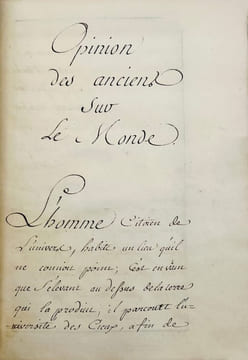 Opinion
des anciens
sur
Le Monde.
L'homme Citoien de
L'univers, habite un lieu qu'il
ne connoit point; C'est en vain
que s'elevant au dessus de la terre
qui la produit, il parcourt l'u-
niversité des Cieux, afin de